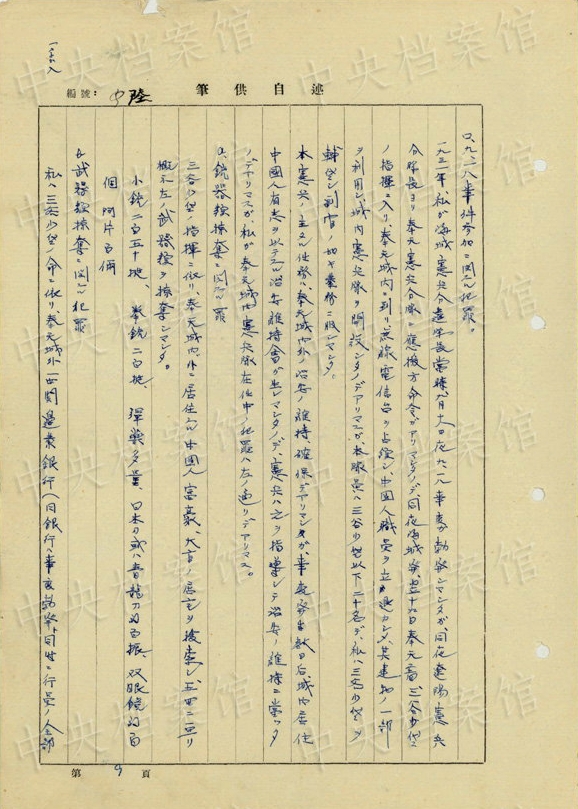 一六八
編號： 中陸
筆供自述
口、九一八事件参加ニ関スル犯罪。
一九三一年、私ガ海城憲兵分遣隊長当時九月十八日夜九一八事変ガ勃発シマシタガ、同夜遼陽憲兵
分隊長ヨリ奉天憲兵分隊ニ応援方命令ガアリマシタノデ同夜海城発、翌十九日奉天着、三谷少佐
ノ指揮ニ入リ、奉天城内ニ到リ無線電信台ヲ占領シ、中国人職員ヲ立退カシメ、其建物ノ一部
ヲ利用シ、城内憲兵隊ヲ開設シタノデアリマスガ、本隊員ハ三谷少佐以下二十名デ、私ハ三谷少佐ヲ
輔佐シ副官ノ如キ業務ニ服シマシタ。
本憲兵ノ主タル任務ハ、奉天城内外ノ治安ノ維持、確保デアリマシタガ、事変発生数日后、城内居住
中国人有志ヲ以テスル治安維持会ガ生レマシタノデ、憲兵ハ之ヲ指導シテ治安ノ維持ニ当ッタ
ノデアリマスガ、私ガ奉天城内憲兵隊在任中ノ犯罪ハ左ノ通リデアリマス。
a、銃器類掠奪ニ関スル罪
三谷少佐ノ指揮ニ依リ、奉天城内外ニ居住スル中国人富豪、大官ノ居宅ヲ捜索シ、五四二回リ
概ネ左ノ武器類ヲ掠奪シマシタ。
小銃 二百五十挺、 拳銃 二百挺、 弾薬 多量、日本刀或ハ青龍刀約百振、双眼鏡約百
個 阿片百両
b、武器類掠奪ニ関スル犯罪
私ハ三谷少佐ノ命ニ依リ、奉天城外西関邊業銀行(同銀行ハ事変勃発ト同時ニ行員ノ全部
第 9 頁